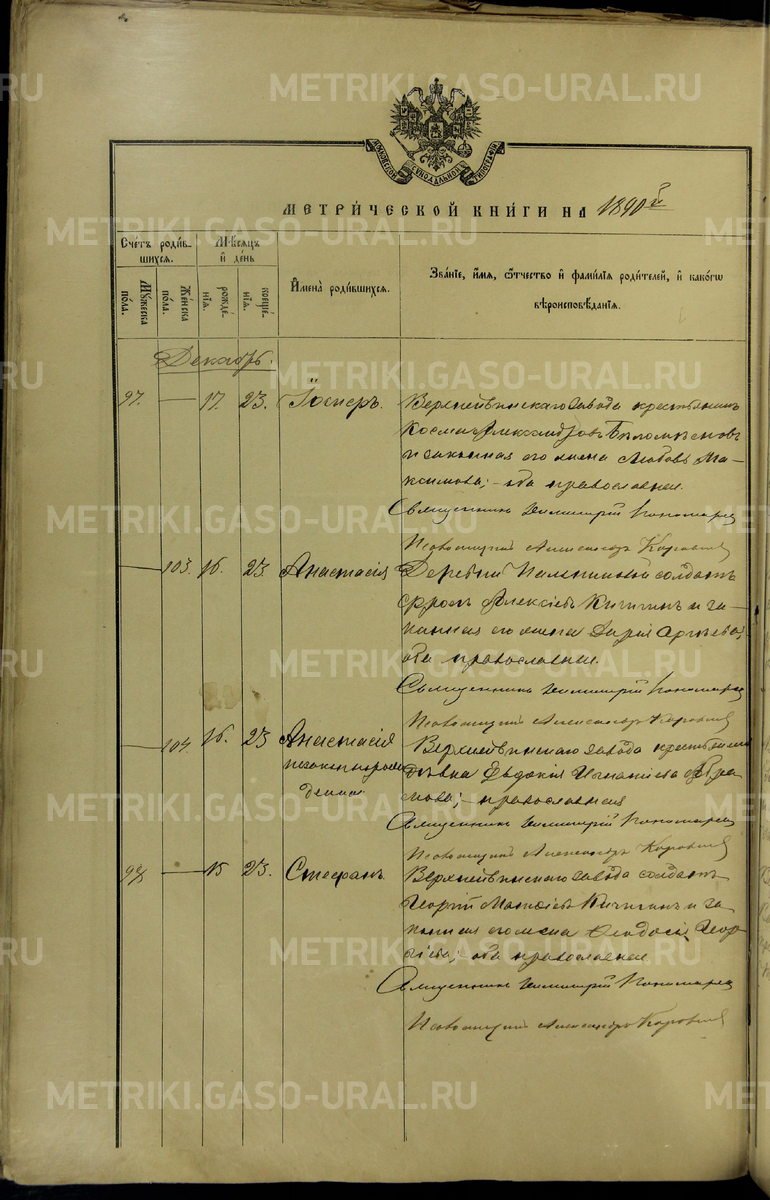 METRIKI.GASO-URAL.RU
МОСКОВСКОЙ СѴНОДАЛЬНОЙ ТИПОГРАФІИ
МЕТРИ́ЧЕСКОЙ КНИ́ГИ НА 1890 й
Сче́тъ роди́в-
шихся.
Мѣ́сяцъ
и҆ де́нь
Му́жеска
по́ла.
Же́нска
по́ла.
рожде́-
нія.
креще́-
нія.
И҆мена̀ роди́вшихся.
Зва́ніе, и҆́мя, ѻ҆́тчество и҆ фами́лія роди́телей, и҆ како́гѡ
вѣроисповѣ́данія.
Декабрь.
97. — 17. 23. Іосифъ.
Верхнейвинскаго завода крестьянинъ
Косма Александровъ
и законная его жена Любовь Ма-
ксимова; оба православные.
Священникъ Димитрій Пономаревъ
Псаломщикъ Александръ
— 103. 16. 23. Анастасія
Деревни солдатъ
Фролъ Алексіевъ Кичигинъ и за-
конная его жена Дарія
оба православные.
Священникъ Димитрій Пономаревъ
Псаломщикъ Александръ
— 104 16. 23 Анастасія
незаконнорож
денная
Верхнейвинскаго завода крестьянская
дѣвка Евдокія Игнатіева Абра
мова; православная
Священникъ Димитрій Пономаревъ
Псаломщикъ Александръ
98 — 15 23. Стефанъ
Верхнейвинскаго завода солдатъ
Георгій Кичигинъ и за
конная его жена Ѳеодосія Геор
гіева; оба православные
Священникъ Димитрій Пономаревъ
Псаломщикъ Александръ